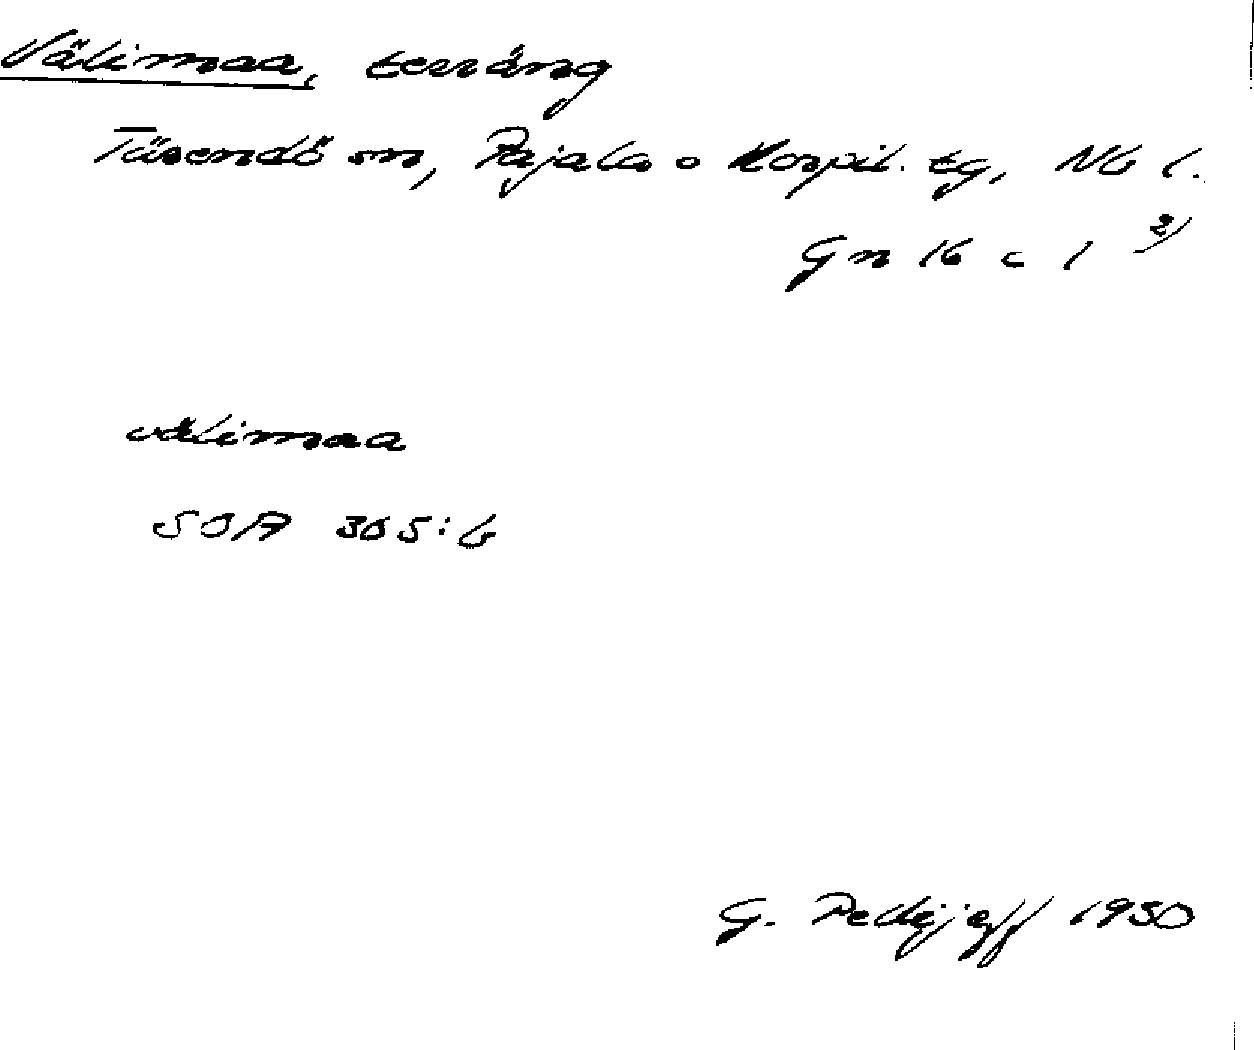 Välimaa, terräng
Tärendö sn, Pajala o Korpil. tg, Nb l.
Gn 16 c 1 2)
välimaa
SOA 365:6
G. Pellijeff 1950